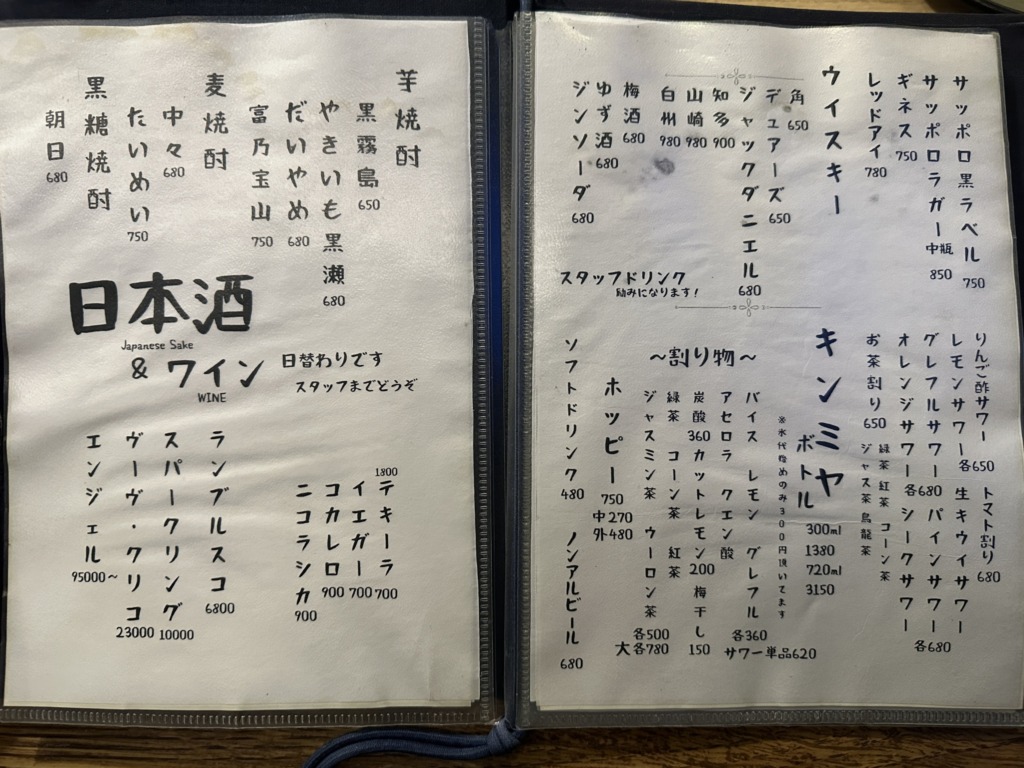 サッポロ黒ラベル 750
サッポロラガー中瓶 850
ギネス 750
レッドアイ 780
ウイスキー
角 650
デュアーズ 650
ジャックダニエル 680
知多 900
山崎 980
白州 980
梅酒 680
ゆず酒 680
ジンソーダ 680
スタッフドリンク
励みになります!
りんご酢サワー
レモンサワー 各650
グレフルサワー
オレンジサワー 各680
トマト割り 680
生キウイサワー
パインサワー
シークサワー
各680
お茶割り 650
緑茶 紅茶 コーン茶
ジャス茶 烏龍茶
キンミヤ
ボトル
300ml
1380
720ml
3150
※氷代始めのみ300円頂いてます
〜割り物〜
バイス レモン グレフル
アセロラ クエン酸
各360
サワー単品620
炭酸 360 カットレモン 200 梅干し 150
緑茶 コーン茶 紅茶
ジャスミン茶 ウーロン茶
各500
大各780
ホッピー 750
中270
外480
ソフトドリンク 480
ノンアルビール 680
芋焼酎
黒霧島 650
やきいも黒瀬 680
だいやめ 680
富乃宝山 750
麦焼酎
中々 680
たいめい 750
黒糖焼酎
朝日 680
日本酒
Japanese Sake
& ワイン
WINE
日替わりです
スタッフまでどうぞ
1800
テキーラ 700
イエガー 700
コカレロ 900
ニコラシカ 900
ランブルスコ 6800
スパークリング 10000
ヴーヴ・クリコ 23000
エンジェル 95000〜